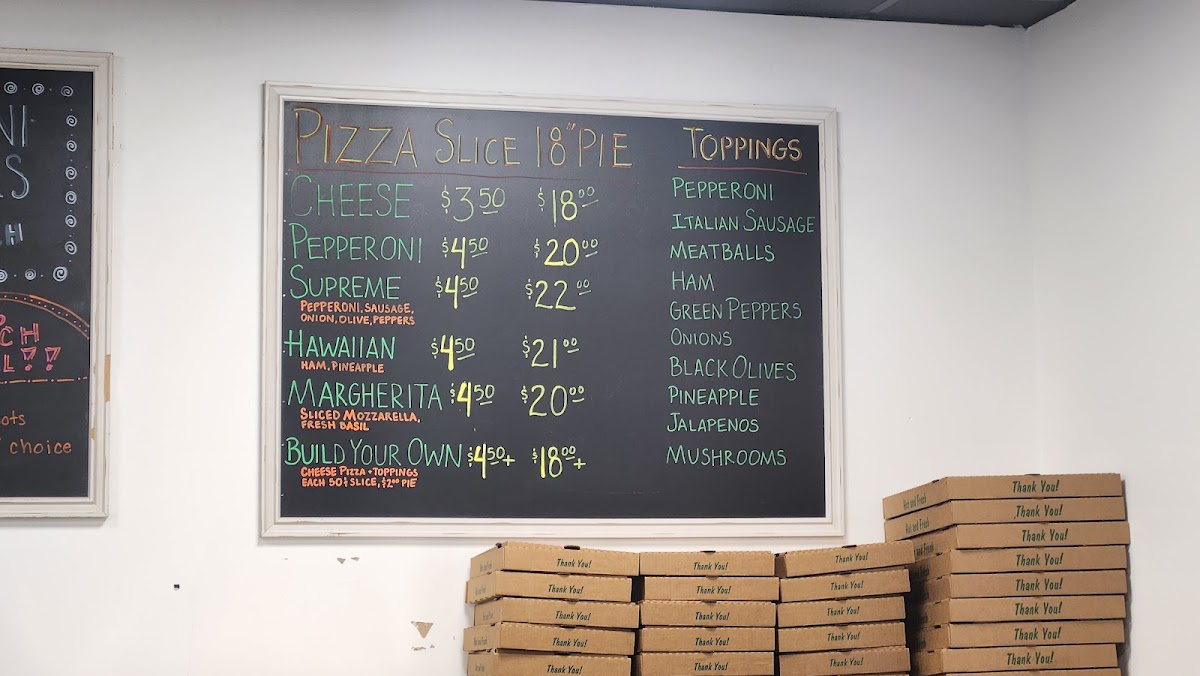 CH
ots
choice
PIZZA SLICE 18" PIE
CHEESE $3.50 $18.00
PEPPERONI $4.50 $20.00
SUPREME $4.50 $22.00
PEPPERONI, SAUSAGE,
ONION, OLIVE, PEPPERS
HAWAIIAN $4.50 $21.00
HAM, PINEAPPLE
MARGHERITA $4.50 $20.00
SLICED MOZZARELLA,
FRESH BASIL
BUILD YOUR OWN $4.50+ $18.00+
CHEESE PIZZA + TOPPINGS
EACH 50¢ SLICE, $2.00 PIE
TOPPINGS
PEPPERONI
ITALIAN SAUSAGE
MEATBALLS
HAM
GREEN PEPPERS
ONIONS
BLACK OLIVES
PINEAPPLE
JALAPENOS
MUSHROOMS
Thank You!
Thank You!
Thank You!
Thank You!
Thank You!
Thank You!
Thank You!
Thank You!
Thank You!
Thank You!
Thank You!
Thank You!
Thank You!
Thank You!
Thank You!
Hot and Fresh Thank You!
Hot and Fresh Thank You!
Thank You!
Thank You!
Thank You!
Thank You!
Thank You!
Thank You!